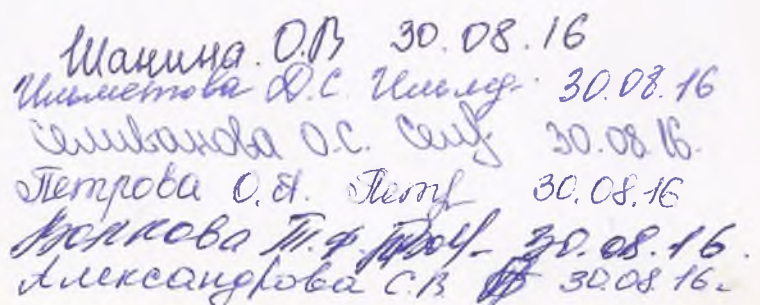 Шанина О.В 30.08.16
Ильметова Д.С. 30.08.16
Селиванова О.С. Сели 30.08.16.
Петрова О.Я. Петр 30.08.16
Волкова Т.Ф. 30.08.16.
Александрова С.В. 30.08.16г